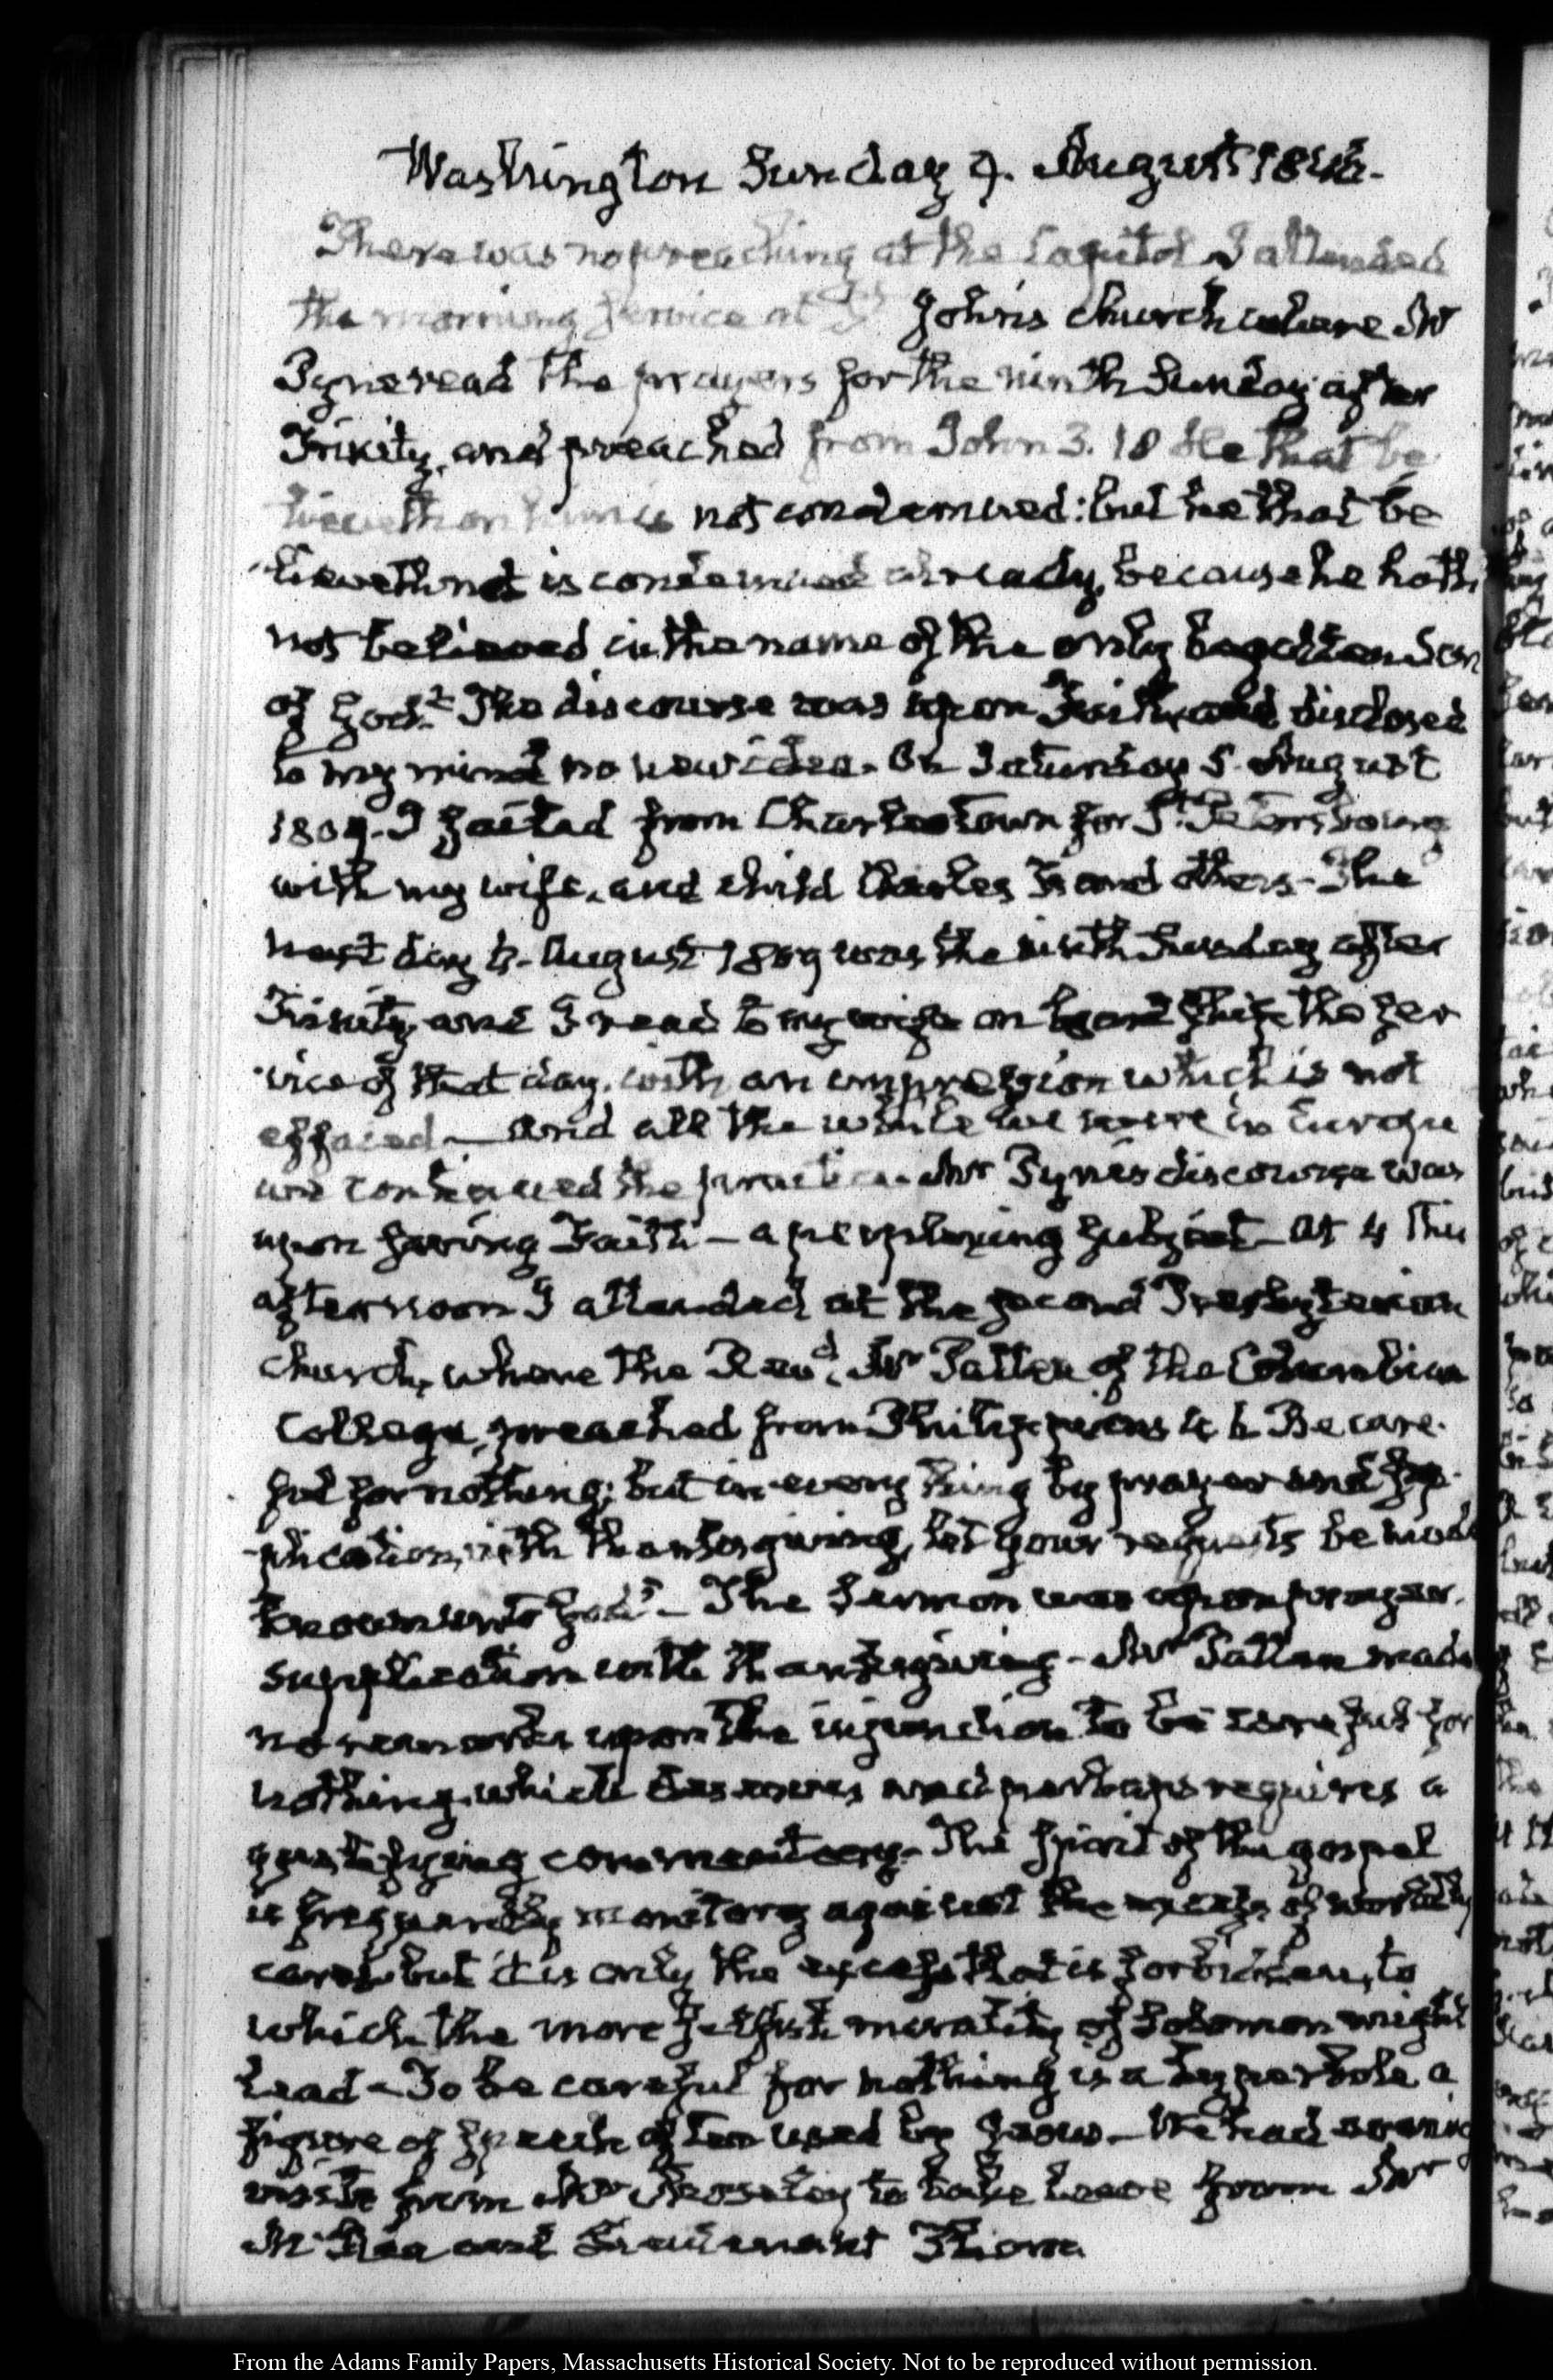 Washington Sunday 7. August 1842.
There was no preaching at the Capitol I attended
the morning service at St John's church where Mr
Tyng read the prayers for the ninth Sunday after
Trinity, and preached from John 3. 18 He that be
lieveth on him is not condemned: but he that be
lieveth not is condemned already, because he hath
not believed in the name of the only begotten Son
of God." The discourse was upon Faith, and disclosed
to my mind no new idea. On Saturday 5. August
1809. I sailed from Charlestown for St. Petersbourg
with my wife, and child Charles Fs and others. The
next day 6. August 1809 was the ninth Sunday after
Trinity, and I read to my wife on board ship, the ser
vice of that day, with an impression which is not
effaced — and all the while we were in Europe
we continued the practice. Mr discourse was
upon saving Faith — a perplexing subject — At 4 this
afternoon I attended at the second Presbyterian
church, where the Revd. Mr of the Columbian
College, preached from Philippians 4. 6. Be care-
ful for nothing; but in every thing by prayer and sup-
plication, with thanksgiving, let your requests be made
known unto God" — The Sermon was upon prayer,
supplication with thanksgiving — Mr made
no remarks upon the injunction to be careful for
nothing which deserves and perhaps requires a
qualifying commentary. The spirit of the gospel
is frequently monitory against the excess of worldly
cares, but it is only the excess that is forbidden, to
which the more selfish morality of Solomon might
lead — To be careful for nothing is a hyperbole, a
figure of speech often used by Jesus. — We had evening
visits from Mr to take leave from Mr
and Lieutenant
From the Adams Family Papers, Massachusetts Historical Society. Not to be reproduced without permission.